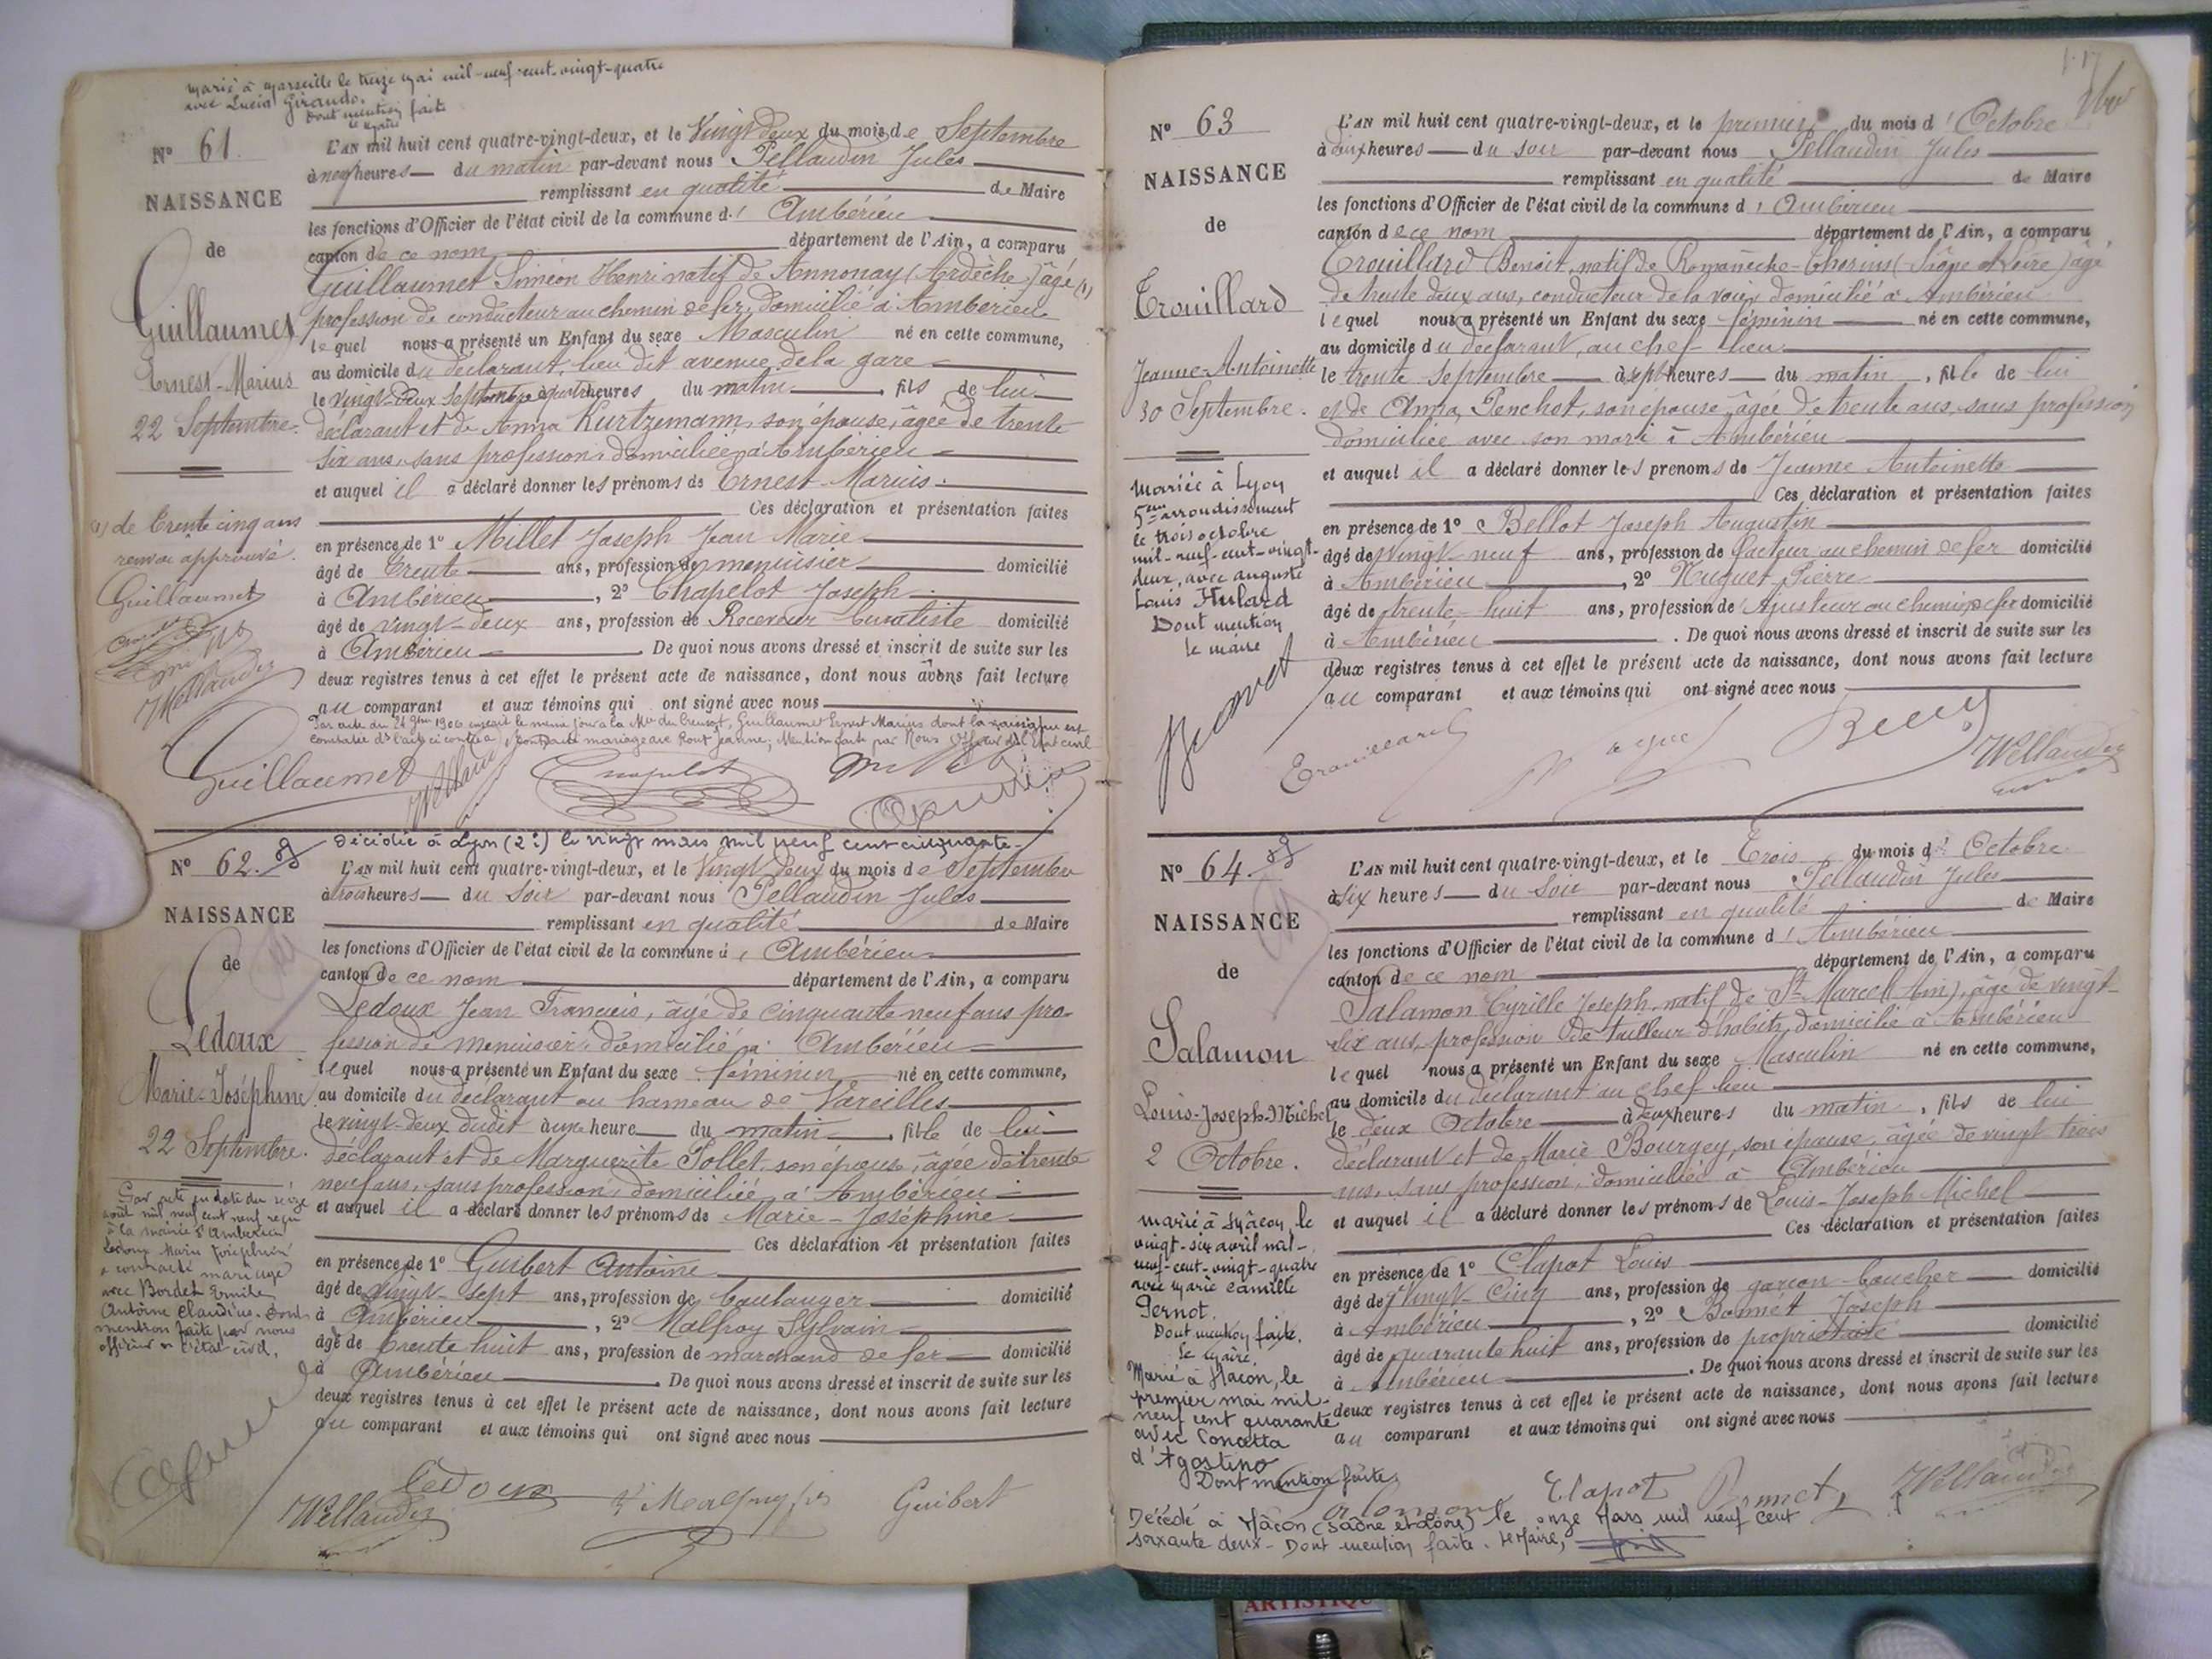 marié à Marseille le treize mai mil-neuf-cent-vingt-quatre
avec Lucia Giraudo.
Dont mention faite
le Maire
N° 61.
NAISSANCE
de
Guillaumet
Ernest-Marius
22 Septembre.
L'AN mil huit cent quatre-vingt-deux, et le Vingt deux du mois de Septembre
à neuf heures du matin par-devant nous Pellaudin Jules
remplissant en qualité de Maire
les fonctions d'Officier de l'état civil de la commune d' Ambérieu
canton de ce nom département de l'Ain, a comparu
Guillaumet Siméon Henri natif de Annonay (Ardèche) âgé (1)
profession de conducteur au chemin de fer, domicilié à Ambérieu
lequel nous a présenté un Enfant du sexe Masculin né en cette commune,
au domicile du déclarant, lieu dit avenue de la gare
le vingt-deux Septembre à quatre heures du matin, fils de lui
déclarant et de Anna Kurtzemann, son épouse, âgée de trente
six ans, sans profession, domiciliée à Ambérieu
et auquel il a déclaré donner les prénoms de Ernest-Marius.
Ces déclaration et présentation faites
en présence de 1° Millet Joseph Jean Marie
âgé de trente ans, profession de menuisier domicilié
à Ambérieu, 2° Chapelot Joseph
âgé de vingt-deux ans, profession de Receveur buraliste domicilié
à Ambérieu. De quoi nous avons dressé et inscrit de suite sur les
deux registres tenus à cet effet le présent acte de naissance, dont nous avons fait lecture
au comparant et aux témoins qui ont signé avec nous
(1) de trente cinq ans
renvoi approuvé.
Guillaumet
Par acte du 24 9bre 1906 inscrit le même jour à la Mie du Creusot, Guillaumet Ernest Marius dont la naissance est
constatée ds l'acte ci contre a contracté mariage avec Pont Jeanne, Mention faite par Nous Officier de l'Etat civil
Guillaumet Chapelot Millet
N° 62.
décédée à Lyon (2e) le vingt mars mil neuf cent cinquante.
NAISSANCE
de
Ledoux
Marie-Joséphine
22 Septembre.
L'AN mil huit cent quatre-vingt-deux, et le Vingt deux du mois de Septembre
à trois heures du soir par-devant nous Pellaudin Jules
remplissant en qualité de Maire
les fonctions d'Officier de l'état civil de la commune d' Ambérieu
canton de ce nom département de l'Ain, a comparu
Ledoux Jean Francois, âgé de cinquante neuf ans pro-
fession de menuisier, domicilié à Ambérieu
lequel nous a présenté un Enfant du sexe féminin né en cette commune,
au domicile du déclarant au hameau de Vareilles
le vingt-deux dudit à une heure du matin, fille de lui
déclarant et de Marguerite Pollet, son épouse, âgée de trente
neuf ans, sans profession, domiciliée à Ambérieu
et auquel il a déclaré donner les prénoms de Marie-Joséphine
Ces déclaration et présentation faites
en présence de 1° Guibert Antoine
âgé de vingt-sept ans, profession de boulanger domicilié
à Ambérieu, 2° Malfroy Sylvain
âgé de trente huit ans, profession de marchand de fer domicilié
à Ambérieu. De quoi nous avons dressé et inscrit de suite sur les
deux registres tenus à cet effet le présent acte de naissance, dont nous avons fait lecture
au comparant et aux témoins qui ont signé avec nous
Par acte en date du seize
août mil neuf cent neuf reçu
à la mairie d'Ambérieu
Ledoux Marie Joséphine
a contracté mariage
avec Bordet Emile
Antoine Claudius. Dont
mention faite par nous
officier de l'état civil.
Ledoux Guibert
N° 63
NAISSANCE
de
Trouillard
Jeanne-Antoinette
30 Septembre.
L'AN mil huit cent quatre-vingt-deux, et le premier du mois d' Octobre
à dix heures du soir par-devant nous Pellaudin Jules
remplissant en qualité de Maire
les fonctions d'Officier de l'état civil de la commune d' Ambérieu
canton de ce nom département de l'Ain, a comparu
Trouillard Benoit, natif de Romanèche-Thorins (Saône et Loire) âgé
de trente deux ans, conducteur de la voie, domicilié à Ambérieu
lequel nous a présenté un Enfant du sexe féminin né en cette commune,
au domicile du déclarant, au chef-lieu
le trente Septembre à sept heures du matin, fille de lui
et de Anna Penchot, son épouse, âgée de trente ans, sans profession
domiciliée avec son mari à Ambérieu
et auquel il a déclaré donner les prénoms de Jeanne Antoinette
Ces déclaration et présentation faites
en présence de 1° Bellot Joseph Augustin
âgé de vingt neuf ans, profession de facteur au chemin de fer domicilié
à Ambérieu, 2° Nuguet Pierre
âgé de trente-huit ans, profession de Ajusteur au chemin de fer domicilié
à Ambérieu. De quoi nous avons dressé et inscrit de suite sur les
deux registres tenus à cet effet le présent acte de naissance, dont nous avons fait lecture
au comparant et aux témoins qui ont signé avec nous
Mariée à Lyon
5eme arrondissement
le trois octobre
mil-neuf-cent-vingt-
deux, avec Auguste
Louis Hulard
Dont mention
le maire
Trouillard
N° 64.
NAISSANCE
de
Salamon
Louis-Joseph-Michel
2 Octobre.
L'AN mil huit cent quatre-vingt-deux, et le Trois du mois d' Octobre
à six heures du soir par-devant nous Pellaudin Jules
remplissant en qualité de Maire
les fonctions d'Officier de l'état civil de la commune d' Ambérieu
canton de ce nom département de l'Ain, a comparu
Salamon Cyrille Joseph, natif de St Marcel (Ain), âgé de vingt-
six ans, profession de tailleur d'habits, domicilié à Ambérieu
lequel nous a présenté un Enfant du sexe Masculin né en cette commune,
au domicile du déclarant au chef lieu
le deux Octobre à deux heures du matin, fils de lui
déclarant et de Marie Bourgey, son épouse, âgée de vingt trois
ans, sans profession, domiciliée à Ambérieu
et auquel il a déclaré donner les prénoms de Louis-Joseph Michel
Ces déclaration et présentation faites
en présence de 1° Clapot Louis
âgé de vingt cinq ans, profession de garçon boucher domicilié
à Ambérieu, 2° Bonnet Joseph
âgé de quarante huit ans, profession de propriétaire domicilié
à Ambérieu. De quoi nous avons dressé et inscrit de suite sur les
deux registres tenus à cet effet le présent acte de naissance, dont nous avons fait lecture
au comparant et aux témoins qui ont signé avec nous
marié à Mâcon, le
vingt-six avril mil-
neuf-cent-vingt-quatre
avec Marie Camille
Pernot.
Dont mention faite.
Le Maire.
Marié à Macon, le
premier mai mil-
neuf cent quarante
avec Concetta
d'Agostino
Dont mention faite
Salamon Clapot Bonnet
Décédé à Mâcon (Saône et Loire) le onze Mars mil neuf cent
soixante deux - Dont mention faite. Le Maire,
ARTISTIQUE